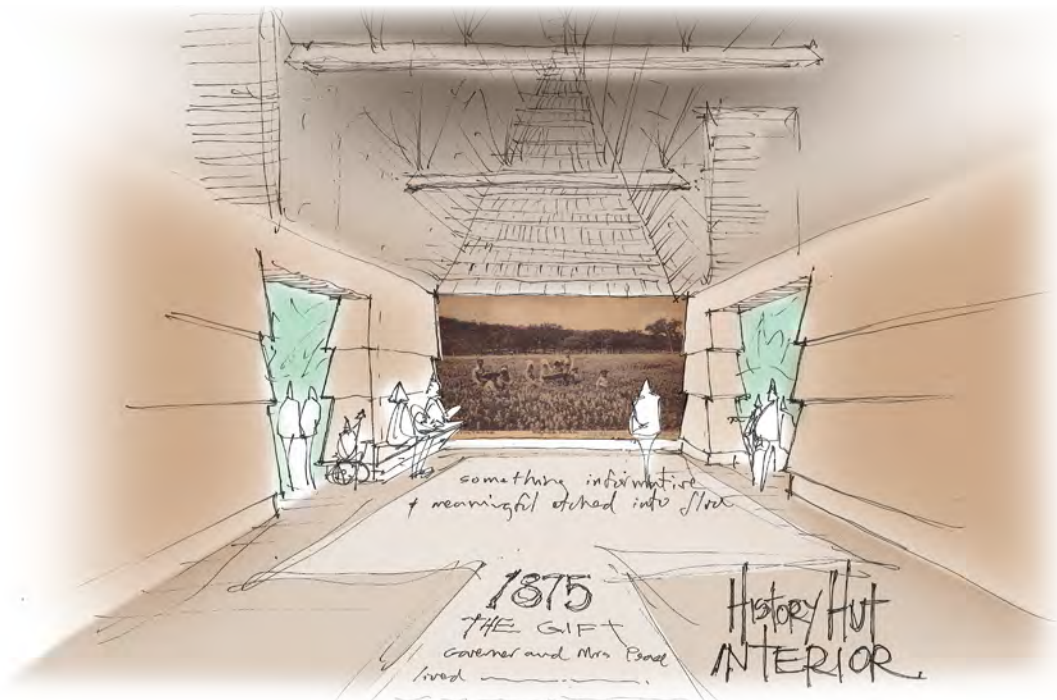 something informative
& meaningful etched into floor
1875
THE GIFT
Governer and Mrs Pease
lived
History Hut
INTERIOR